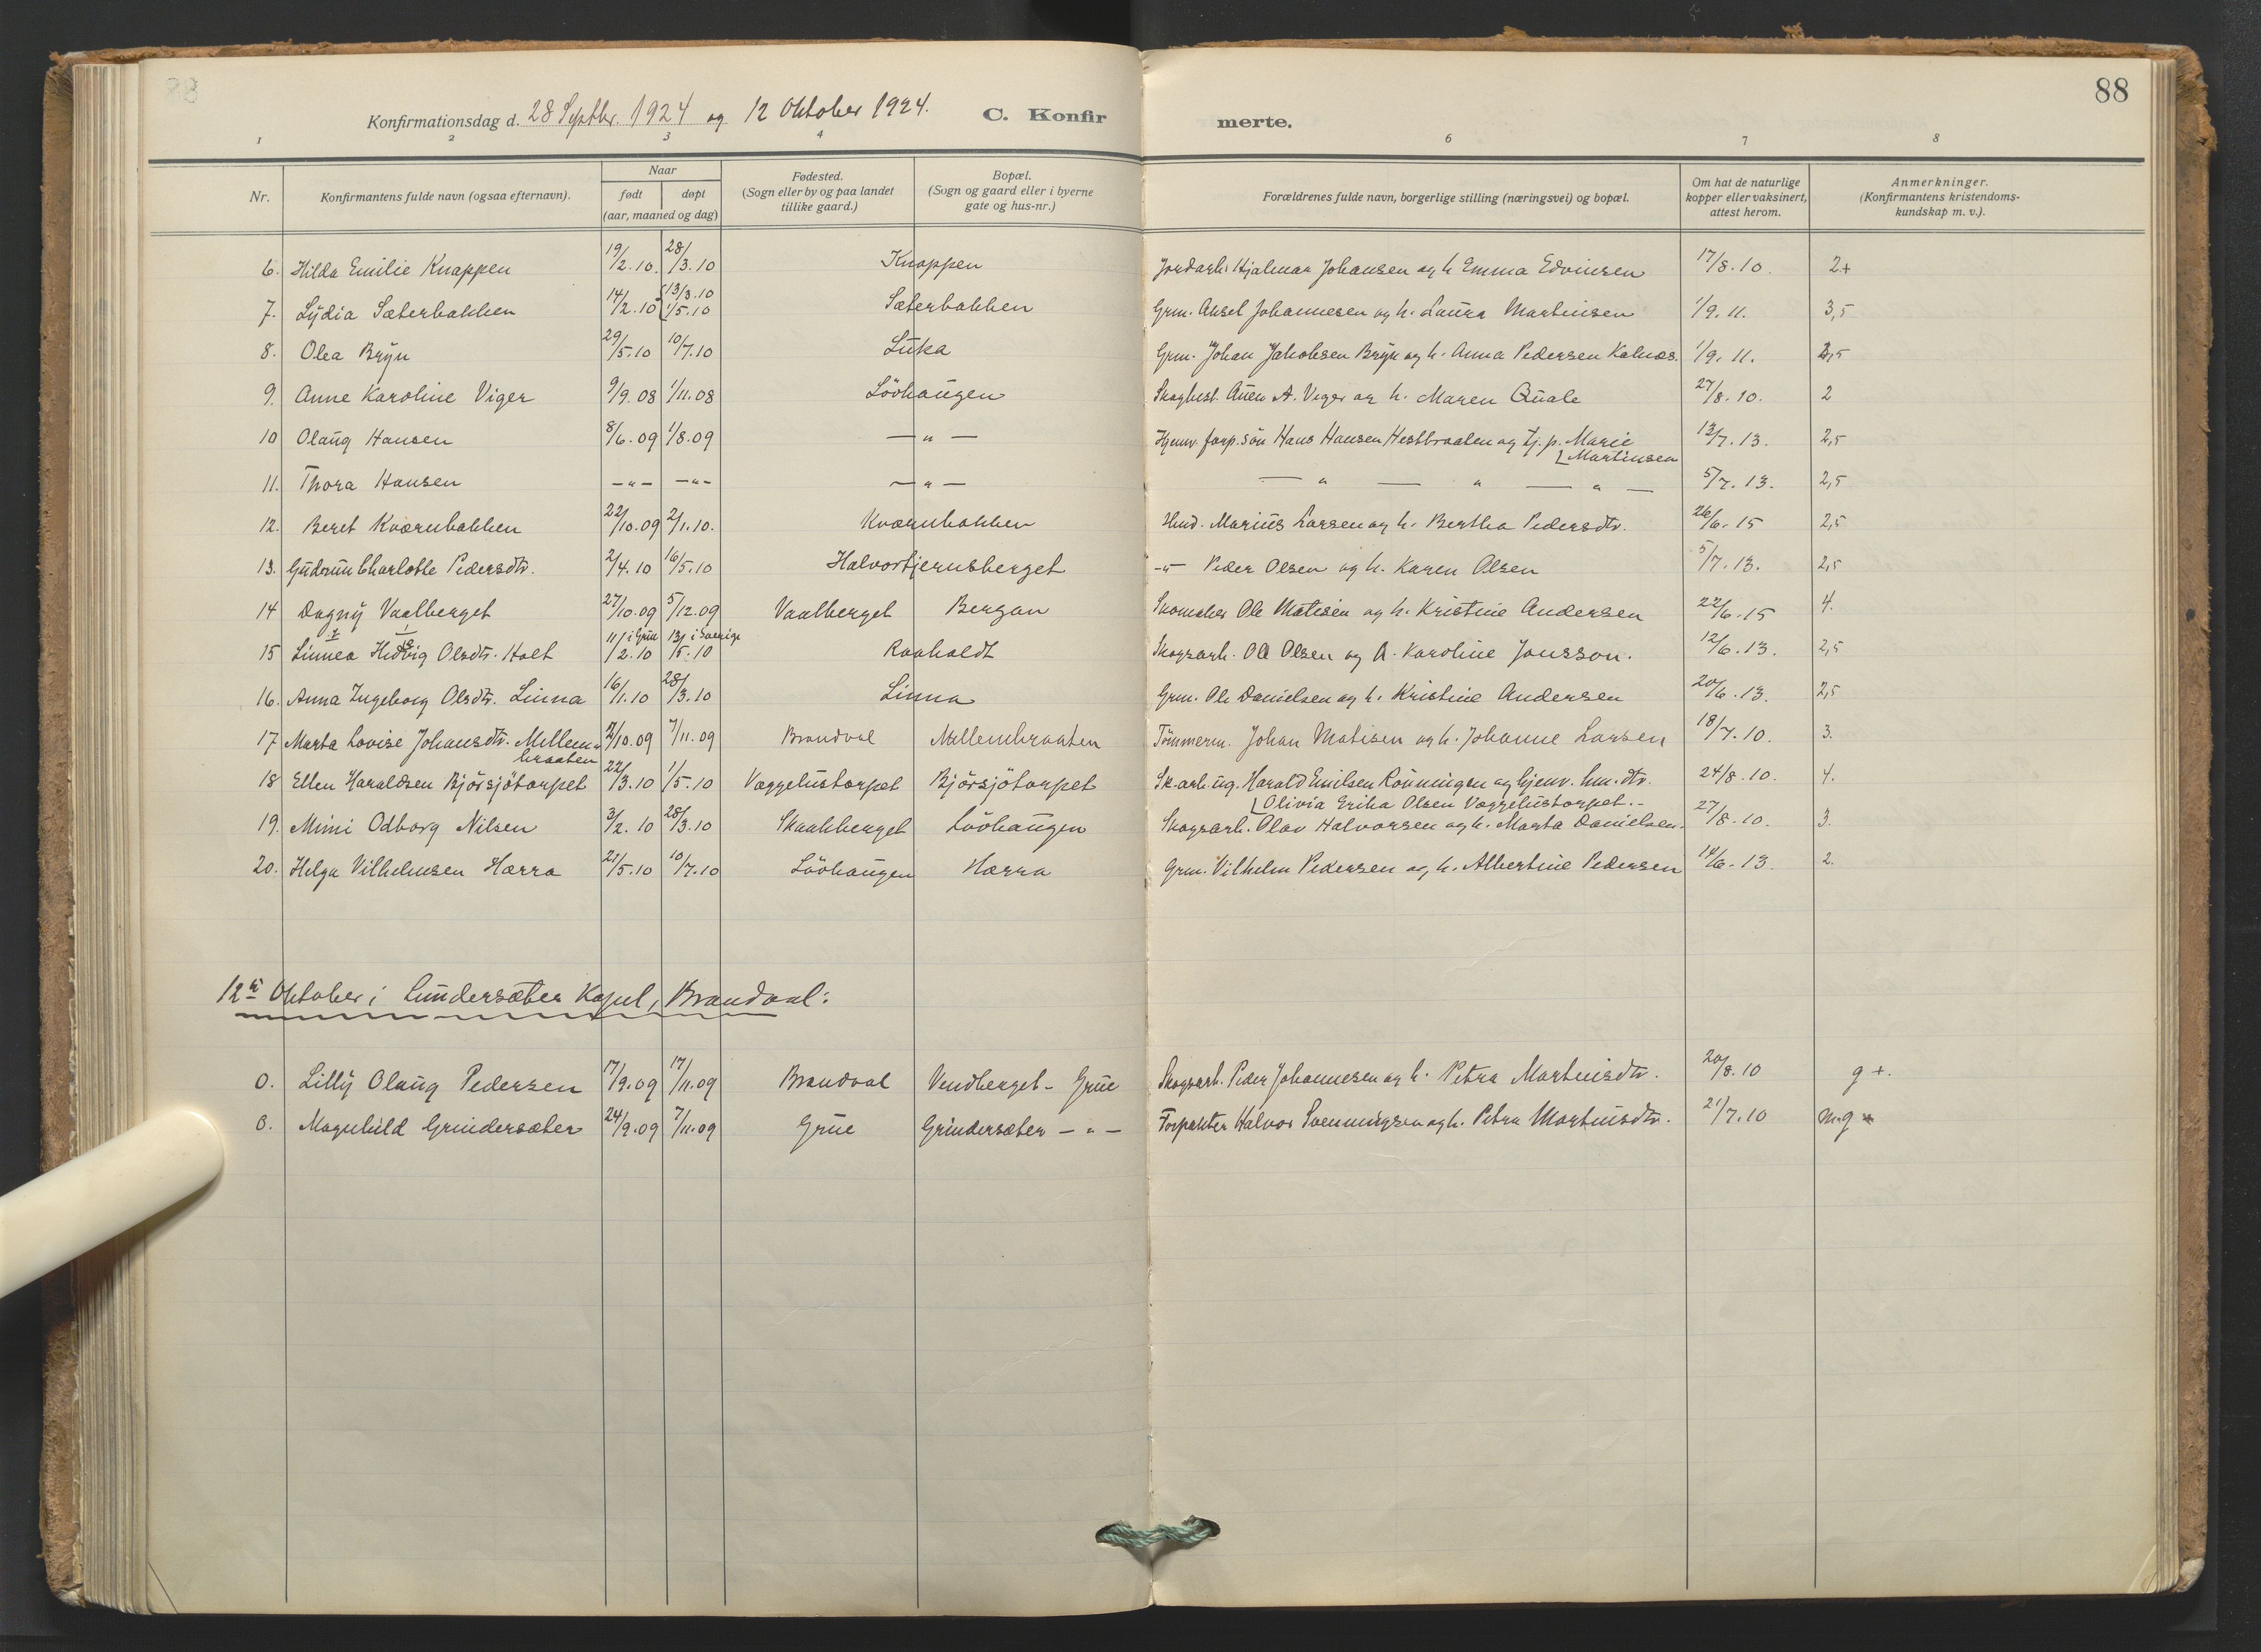 88
Konfirmationsdag d. 28 Septbr. 1924 og 12 Oktober 1924. C. Konfirmerte.
1 2 3 4 6 7 8
Nr. Konfirmantens fulde navn (ogsaa efternavn). Naar født døpt (aar, maaned og dag) Fødested. (Sogn eller by og paa landet tillike gaard.) Bopæl. (Sogn og gaard eller i byerne gate og hus-nr.) Forældrenes fulde navn, borgerlige stilling (næringsvei) og bopæl. Om hat de naturlige kopper eller vaksinert, attest herom. Anmerkninger. (Konfirmantens kristendoms-kundskap m. v.).
6. Hilda Emilie Knappen 19/2.10. 28/3.10 Knappen Jordarb. Hjalmar Johansen og h. Emma Edvinsen 17/8.10. 2+
7. Lydia Sæterbakken 14/2.10 {13/3.10 1/5.10 Sæterbakken Grm. Aksel Johannesen og h. Laura Martinsen 1/9.11. 3,5
8. Olea Bryn 29/5.10 10/7.10 Luka Grm. Johan Jakobsen Bryn og h. Anna Pedersen Kalnæs. 1/9.11. 2,5
9. Anne Karoline Viger 9/9.08 1/11.08 Lövhaugen Skogbest. Auen A. Viger og h. Maren Quale 27/8.10. 2
10 Olaug Hansen 8/6.09 1/8.09 — " — Hjemv. forp. sön Hans Hansen Hestbraaten og tj. p. Marie Martinsen 13/7.13. 2,5
11. Thora Hansen — " — — " — — " — — " — " — " — 5/7.13. 2,5
12. Beret Kværnbakken 22/10.09 2/1.10. Kværnbakken Hmd. Marius Larsen og h. Bertha Pedersdtr. 26/6.15 2,5
13. Gudrun Charlotte Pedersdtr. 2/4.10 16/5.10 Halvortjernsberget -"- Peder Olsen og h. Karen Olsen 5/7.13. 2,5
14 Dagny Vaalberget 27/10.09 5/12.09 Vaalberget Bergan Skomaker Ole Matisen og h. Kristine Andersen 22/6.15 4.
15 Linnea Hedvig Olsdtr. Holt 11/2.10 i Grue 13/5.10 i Sverige Raaholdt Skogsarb. Ole Olsen og A. Karoline Jonsson. 12/6.13. 2,5
16. Anna Ingeborg Olsdtr. Linna 16/1.10 28/3.10 Linna Grm. Ole Danielsen og h. Kristine Andersen 20/6.13. 2,5
17 Marta Lovise Johansdtr. Mellembraaten 2/10.09 7/11.09 Brandval Mellembraaten Tömmerm. Johan Matisen og h. Johanne Larsen 18/7.10. 3.
18 Ellen Haraldsen Björsjötorpet 22/3.10 1/5.10 Væggelustorpet Björsjötorpet Sk.arb. ug. Harald Emilsen Rönningen og hjemv. hm.dtr. Olivia Erika Olsen Væggelustorpet.- 24/8.10. 4.
19. Mimi Odborg Nilsen 3/2.10 28/3.10 Skaakberget Lövhaugen Skogsarb. Olav Halvorsen og h. Marta Danielsen. 27/8.10. 3.
20. Helga Vilhelmsen Hærra 21/5.10 10/7.10 Lövhaugen Hærra Grm. Vilhelm Pedersen og h. Albertine Pedersen 14/6.13. 2.
12te Oktober i Lundersæter Kapel, Brandval:
0. Lilly Olaug Pedersen 17/9.09 17/11.09 Brandval Vendberget - Grue Skogsarb. Peder Johannesen og h. Petra Martinsdtr. 20/8.10 g +.
0. Magnhild Grindersæter 24/9.09 7/11.09 Grue Grindersæter — " — Forpakter Halvor Svenningsen og h. Petra Martinsdtr. 21/7.10 m.g